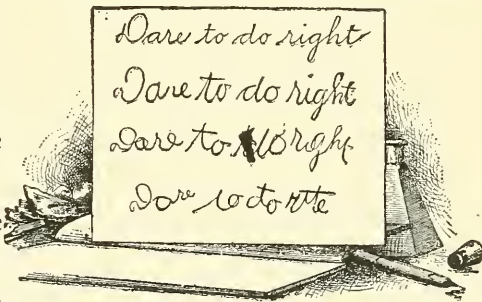 Dare to do right
Dare to do right
Dare to righ
Dare to do rtte